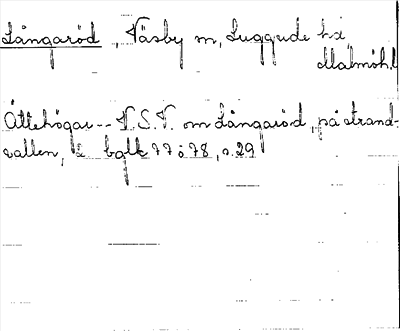 Långaröd, Väsby sn, Luggude hd,
Malmöh. l
Ättehögar -- N.S.V. om Långaröd, på strand-
vallen, 2 bglk 77 o 78, s. 29